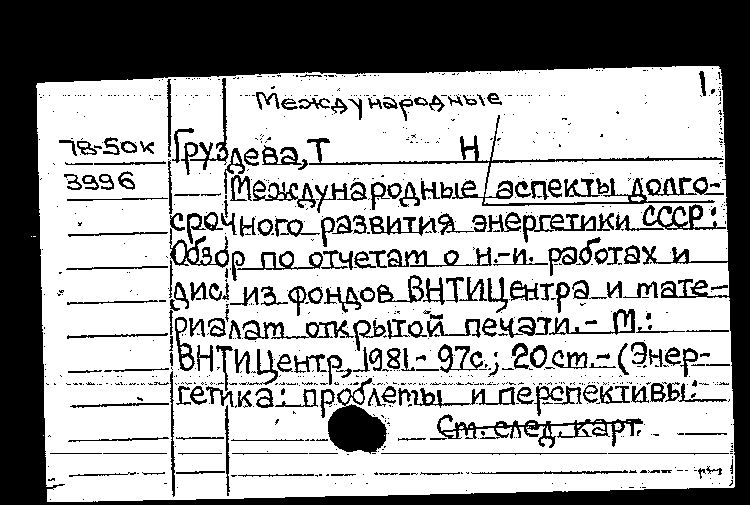 1.
Международные
78-50к Груздева, Т Н
3996 Международные аспекты долго-
срочного развития энергетики СССР:
Обзор по отчетам о н.-и. работах и
дис. из фондов ВНТИЦентра и мате-
риалам открытой печати.- М.:
ВНТИЦентр, 1981.- 97с.; 20см.- (Энер-
гетика: проблемы и перспективы:
См. след. карт.